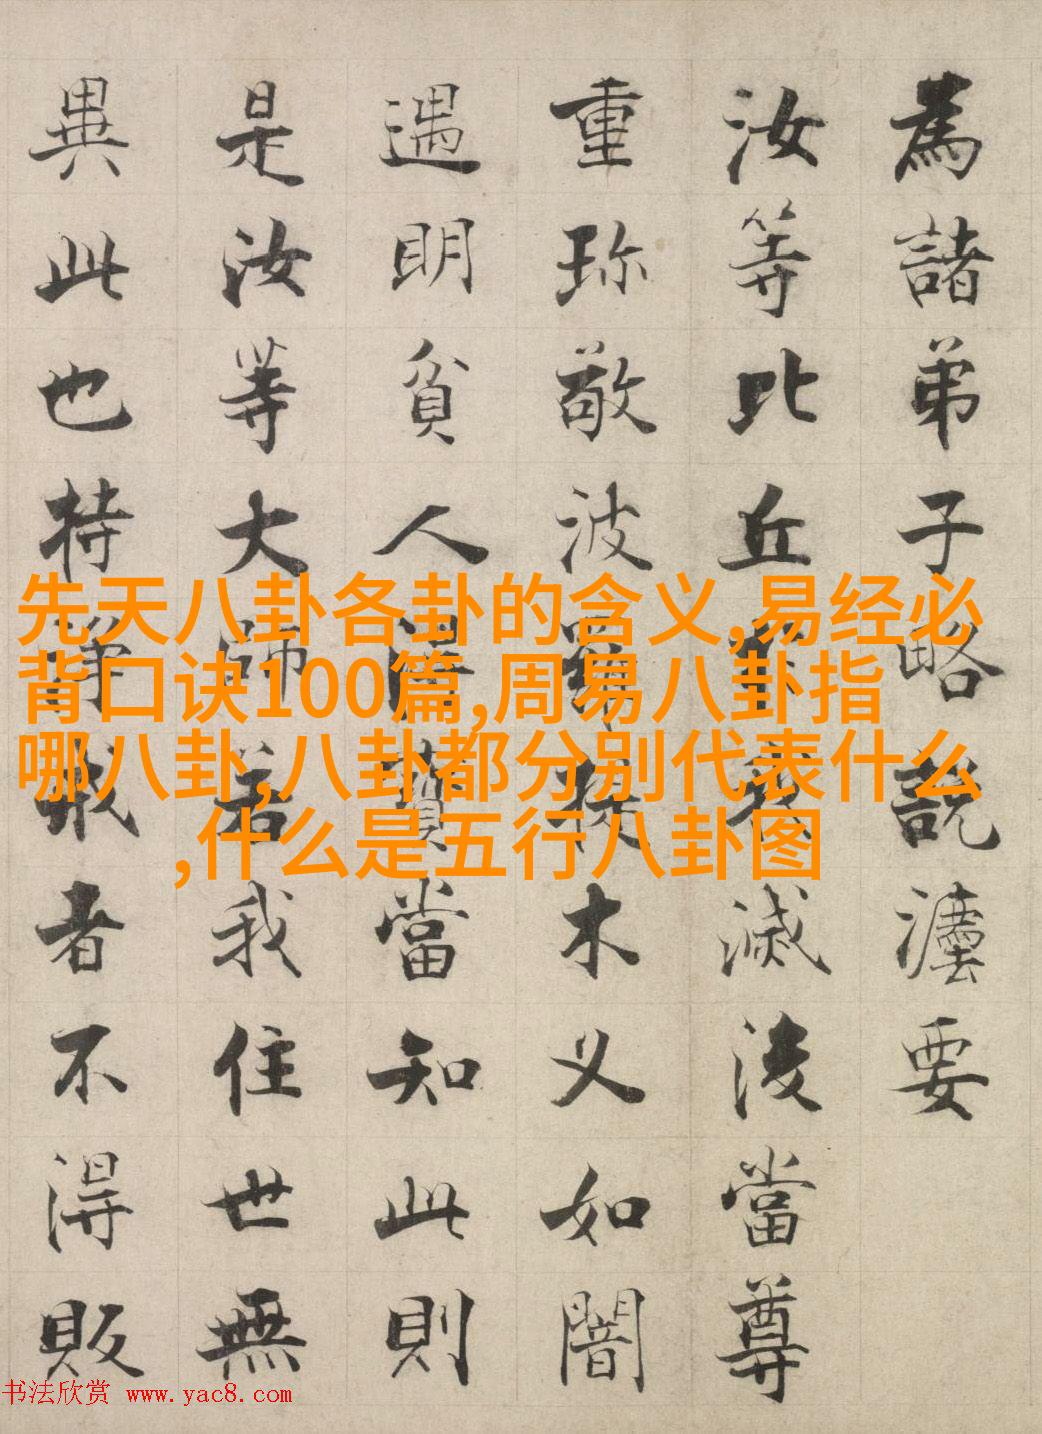 為諸弟子略說灋要
汝等比丘於我滅後當尊
重珎敬波羅提木叉如闇
遇明貧人得寶當知此則
是汝等大師若我住世無
異此也持淨戒者不得販
先天八卦各卦的含义,易经必
背口诀100篇,周易八卦指
哪八卦,八卦都分别代表什么
,什么是五行八卦图
书法欣赏 www.yac8.com